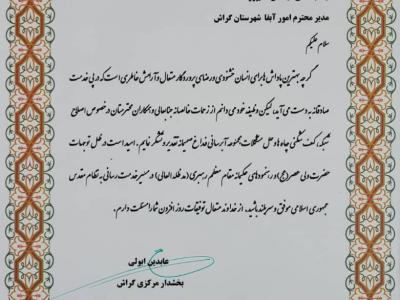 مدیر محترم امور آبفا شهرستان گراش
سلام علیکم
گرچه بهترین پاداش ها برای انسان خشنودی و رضای پروردگار متعال و آرامش خاطری است که در پی خدمت
صادقانه به دست می آید، لیکن وظیفه خود می دانم از زحمات خالصانه جنابعالی و همکاران محترمتان در خصوص اصلاح
شبکه، کف شکنی چاه ها و حل مشکلات مجموعه آبرسانی فداغ صمیمانه تقدیر و تشکر نمایم. امید است در ظل توجهات
حضرت ولی عصر (عج) و رهنمودهای حکیمانه مقام معظم رهبری (مد ظله العالی) در مسیر خدمت رسانی به نظام مقدس
جمهوری اسلامی موفق و سربلند باشید. از خداوند متعال توفیقات روز افزون شما را مسئلت دارم.
عابدین ابولی
بخشدار مرکزی گراش